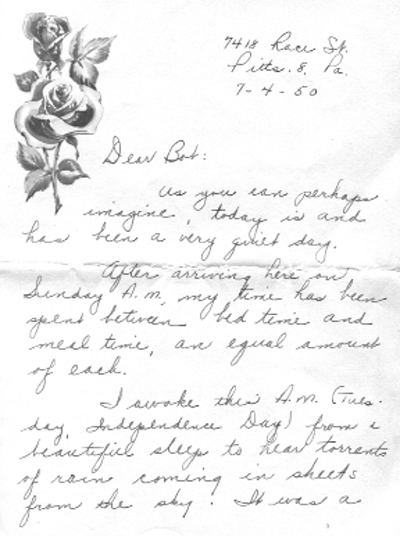 7418 Race St.
Pitts. 8. Pa.
7-4-50
Dear Bob:
As you can perhaps
imagine, today is and
has been a very quiet day.
After arriving here on
Sunday A.M. my time has been
spent between bed time and
meal time, an equal amount
of each.
I awoke this A.M. (Tues-
day, Independence Day) from a
beautiful sleep to hear torrents
of rain coming in sheets
from the sky. It was a